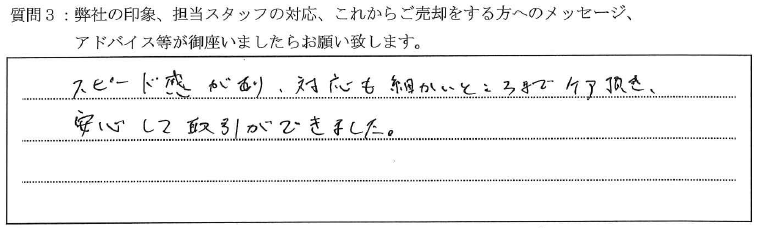 質問３：弊社の印象、担当スタッフの対応、これからご売却をする方へのメッセージ、
アドバイス等が御座いましたらお願い致します。
スピード感があり、対応も細かいところまでケア頂き、
安心して取引ができました。